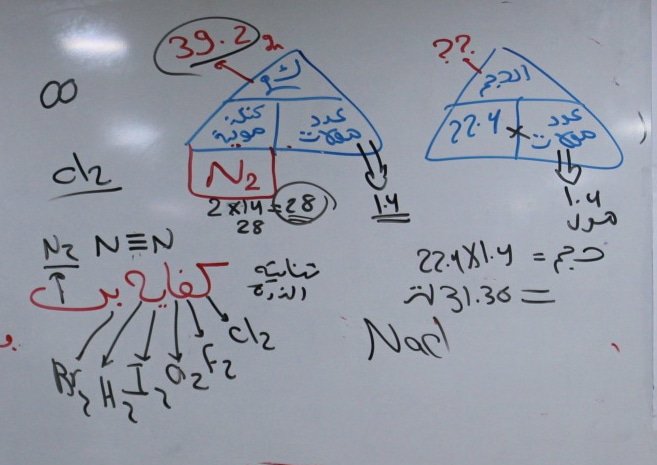 39.2 gm
ك
كتلة مولية
عدد مولات
N2
2 x 14 = 28
28
1.4
??
الحجم
22.4 x عدد مولات
1.4
مول
حجم = 22.4 x 1.4
= 31.36 ل
∞
Cl2
N2 N≡N
كفايه بن
ثنائية
الذرة
Br2 H2 I2 O2 F2 Cl2
Nacl